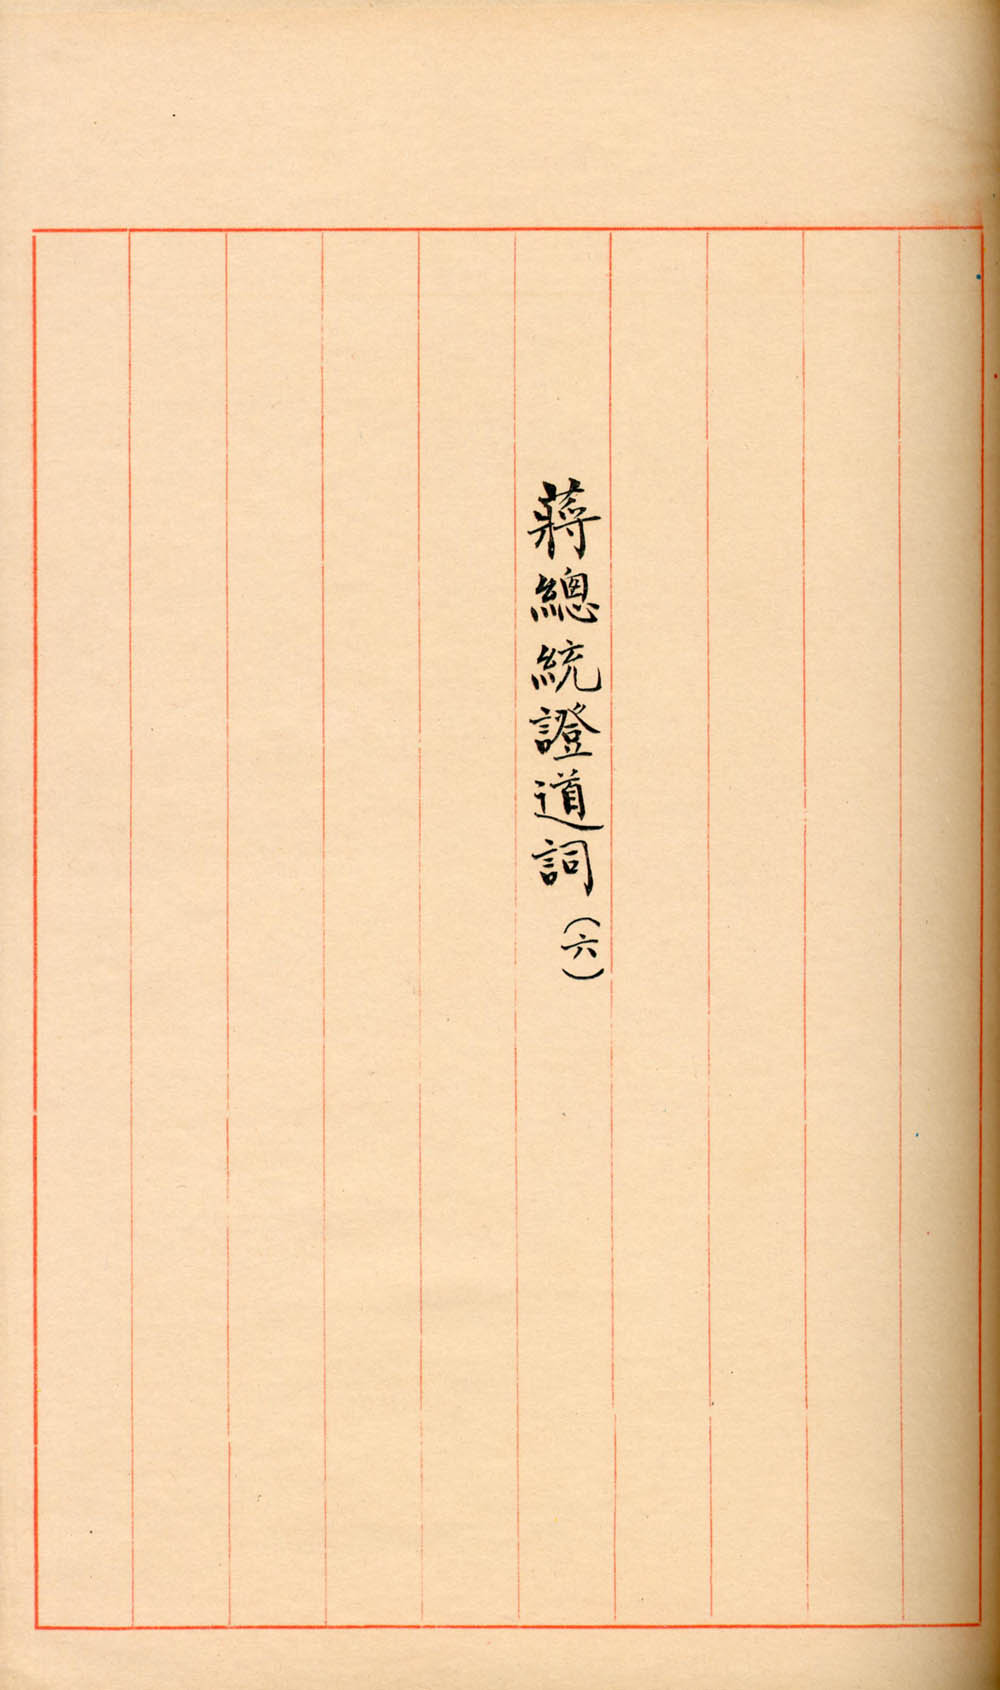 蔣總統證道詞（六）